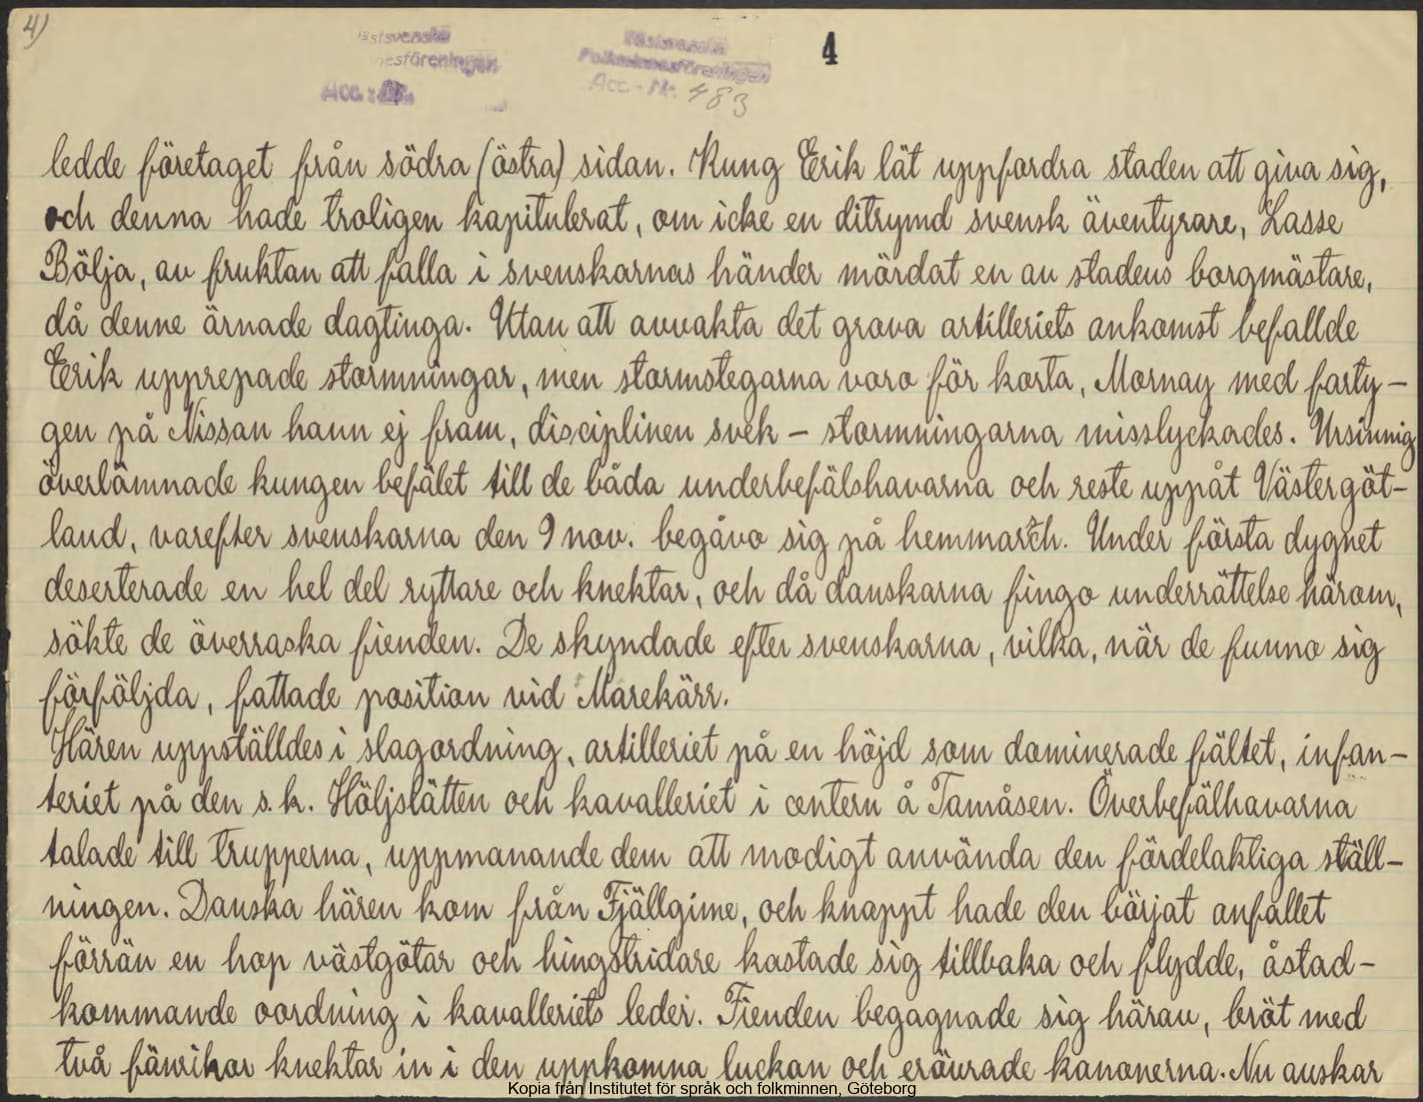 4)
Västsvenska
Folkminnesföreningen
Acc. - Nr. 483
4
ledde företaget från södra (östra) sidan. Kung Erik lät uppfordra staden att giva sig,
och denna hade troligen kapitulerat, om icke en ditrymd svensk äventyrare, Lasse
Bölja, av fruktan att falla i svenskarnas händer mördat en av stadens borgmästare,
då denne ärnade dagtinga. Utan att avvakta det grova artilleriets ankomst befallde
Erik upprepade stormningar, men stormstegarna voro för korta, Mornay med farty-
gen på Nissan hann ej fram, disciplinen svek – stormningarna misslyckades. Ursinnig
överlämnade kungen befälet till de båda underbefälshavarna och reste uppåt Västergöt-
land, varefter svenskarna den 9 nov. begåvo sig på hemmarch. Under första dygnet
deserterade en hel del ryttare och knektar, och då danskarna fingo underrättelse härom,
sökte de överraska fienden. De skyndade efter svenskarna, vilka, när de funno sig
förföljda, fattade position vid Marekärr.
Hären uppställdes i slagordning, artilleriet på en höjd som dominerade fältet, infan-
teriet på den s.k. Höljslätten och kavalleriet i centern å Tamåsen. Överbefälhavarna
talade till trupperna, uppmanande dem att modigt använda den fördelaktiga ställ-
ningen. Danska hären kom från Fjällgime, och knappt hade den börjat anfallet
förrän en hop västgötar och hingstridare kastade sig tillbaka och flydde, åstad-
kommande oordning i kavalleriets leder. Fienden begagnade sig härav, bröt med
två fänrikor knektar in i den uppkomna luckan och erövrade kanonerna. Nu önskar
Kopia från Institutet för språk och folkminnen, Göteborg